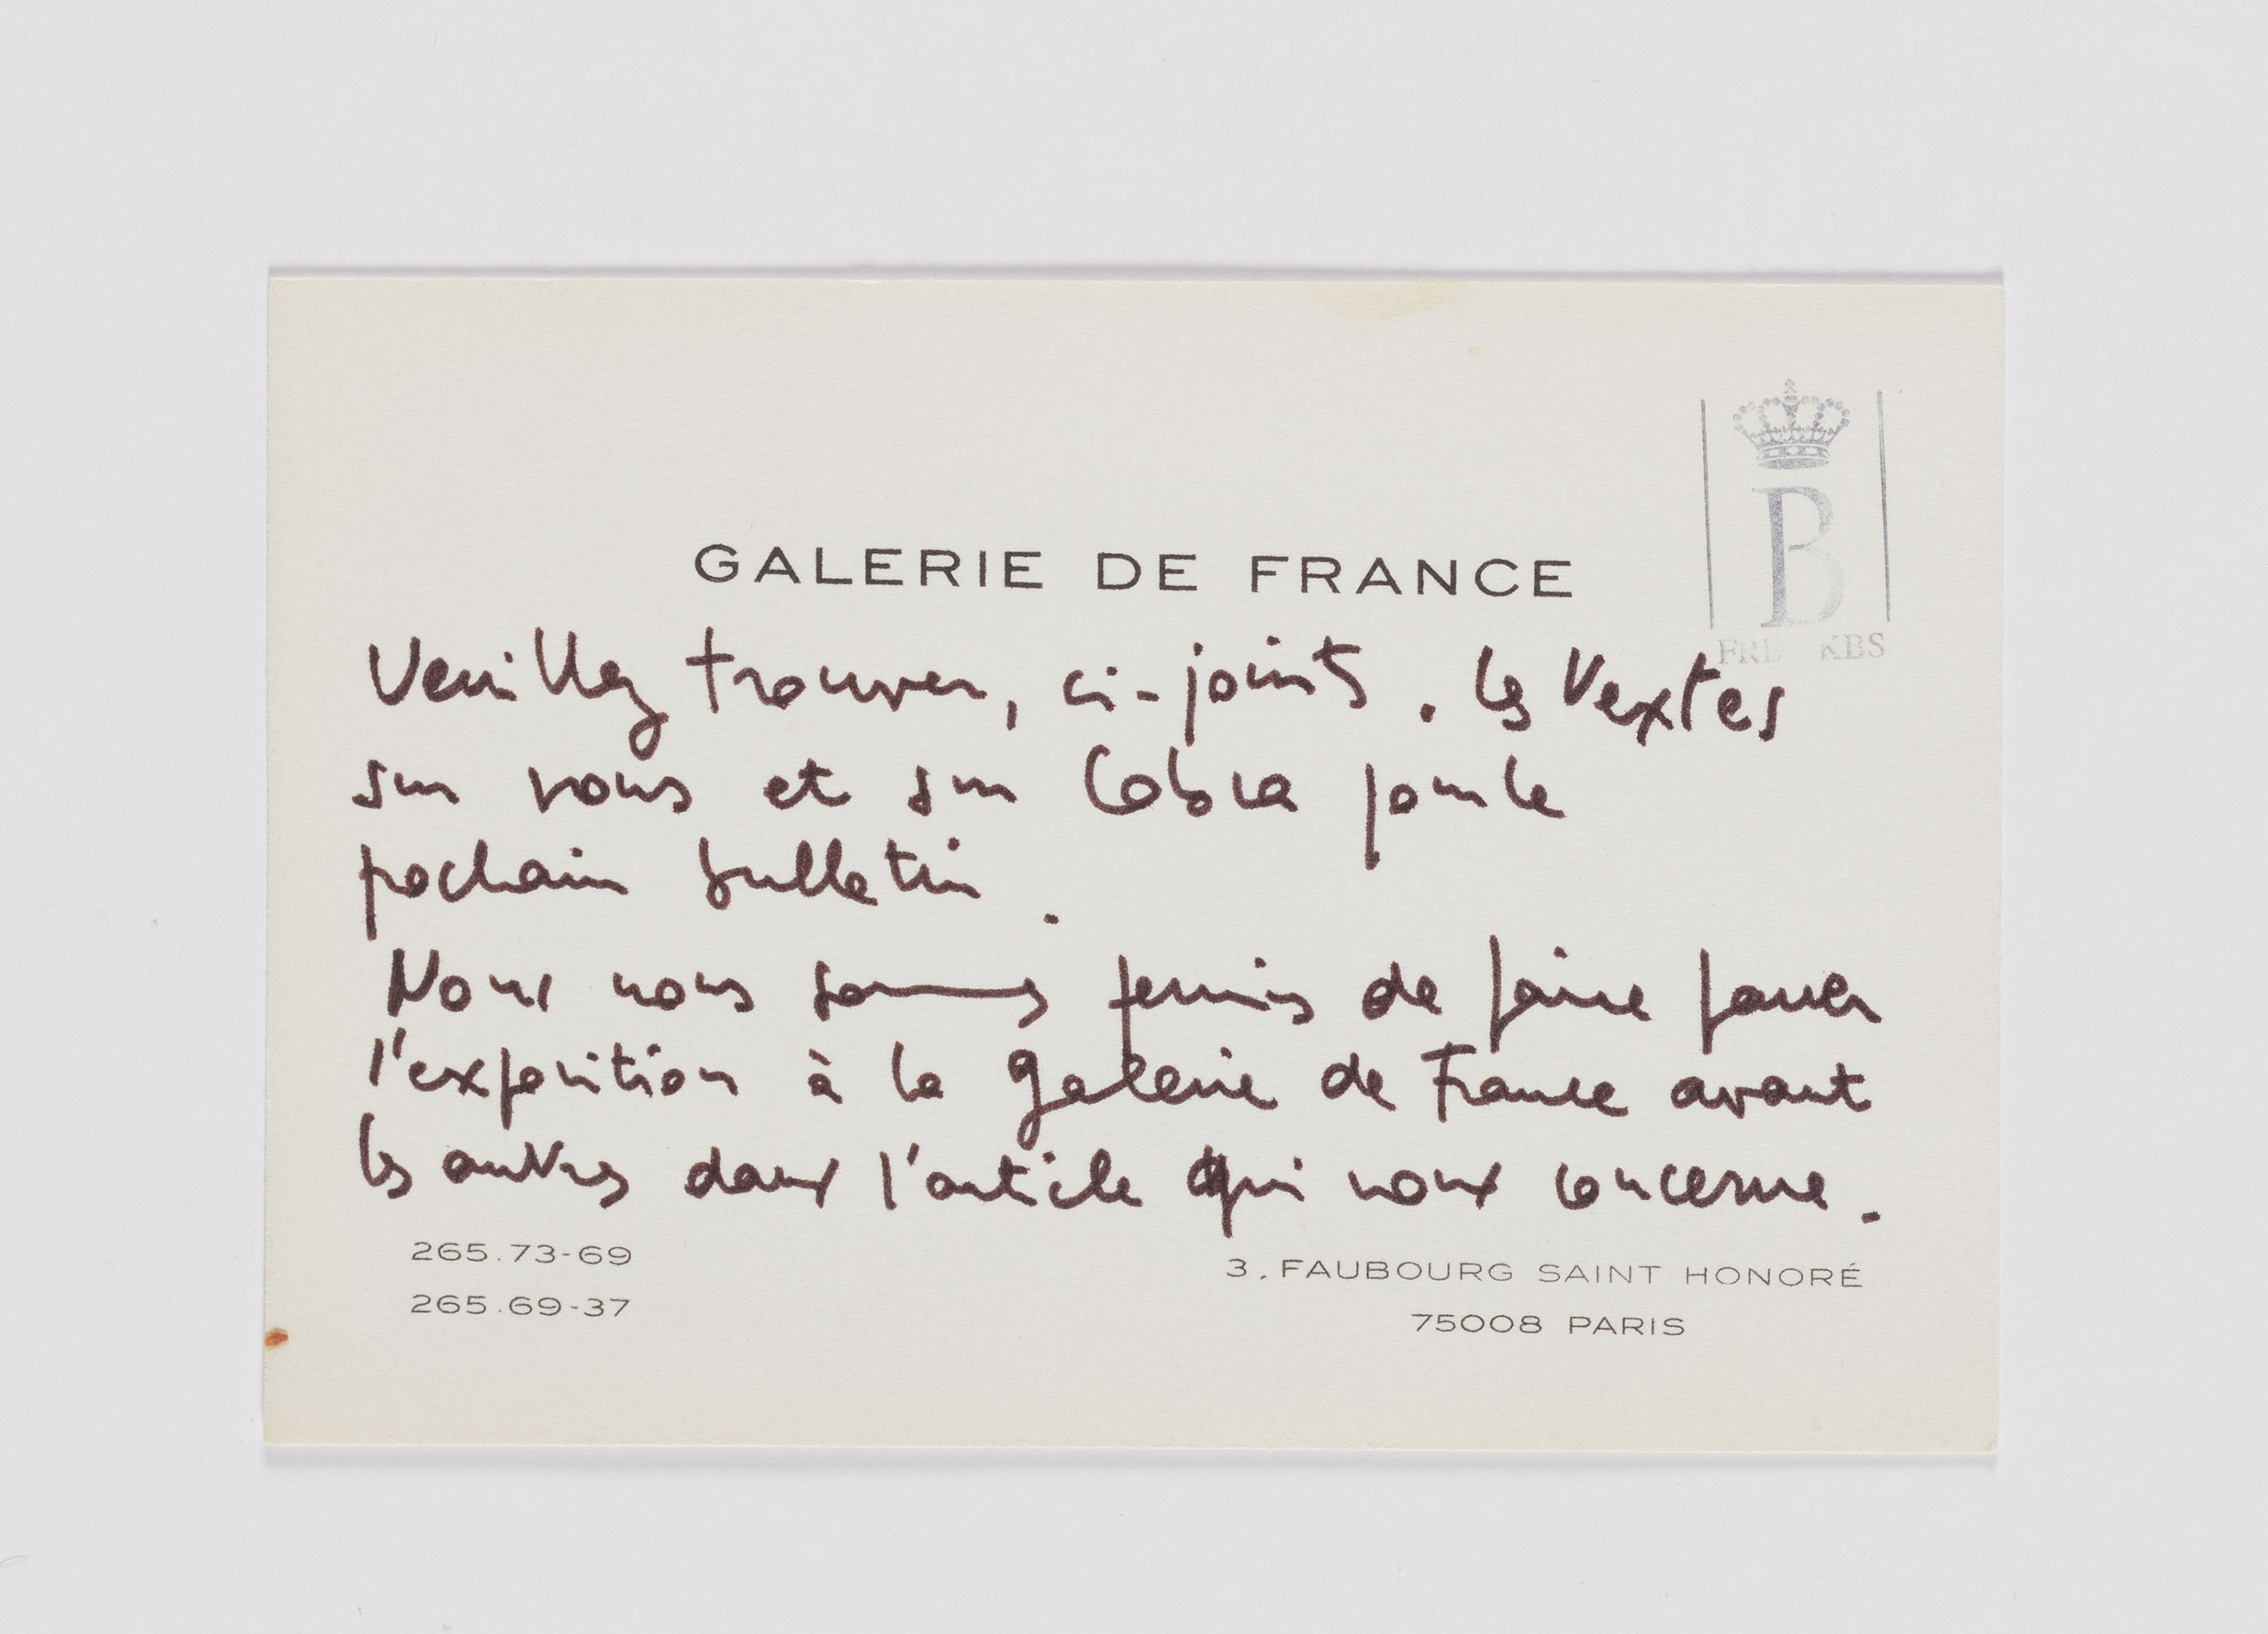 B
FRB KBS
GALERIE DE FRANCE
Veuillez trouver, ci-joints. les textes
sur vous et sur Cobra pour le
prochain bulletin.
Nous nous sommes permis de faire passer
l'exposition à la Galerie de France avant
les autres dans l'article qui vous concerne.
265.73-69
265.69-37
3, FAUBOURG SAINT HONORÉ
75008 PARIS